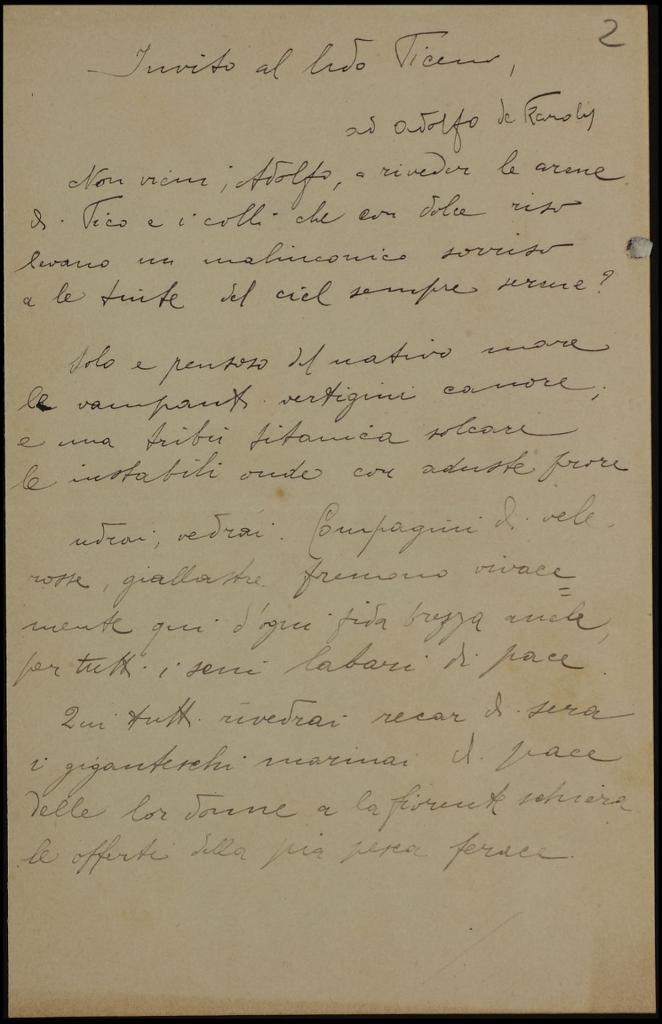 2
Invito al lido Piceno,
ad Adolfo de Karolis
Non vieni, Adolfo, a riveder le arene
di Pico e i colli che con dolce riso
levano un malinconico sorriso
a le tinte del ciel sempre serene?
Solo e pensoso del nativo mare
le vampanti vertigini canore,
e una tribù titanica solcare
le instabili onde con aduste prore
udrai, vedrai. Compagini di vele
rosse, giallastre fremono vivace=
mente qui d'ogni fida brezza anele,
per tutti i seni labari di pace.
Qui tutti rivedrai recar di sera
i giganteschi marinai di pace
delle lor donne a la fiorente schiera
le offerti della pia pesca ferace.